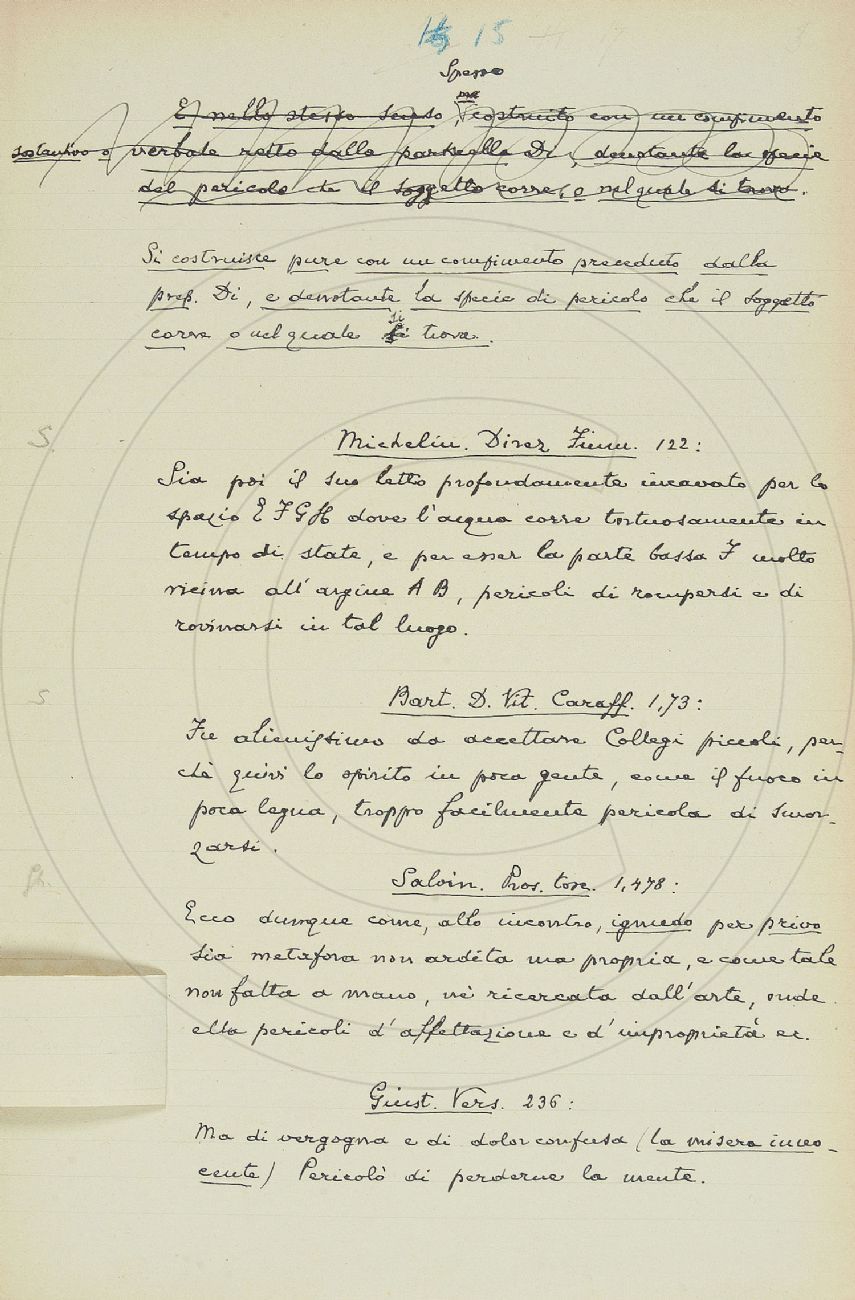 15
Spesso
E nello stesso senso, ma costruito con un compimento
sostantivo o verbale retto dalla particella Di, denotante la specie
del pericolo che il soggetto corre, o nel quale si trova.
Si costruisce pure con un compimento preceduto dalla
prep. Di, e denotante la specie di pericolo che il soggetto
corre o nel quale si trova.
S.
Michelin. Direz. Fium. 122:
Sia poi il suo letto profondamente incavato per lo
spazio E F G H dove l'acqua corre tortuosamente in
tempo di state, e per esser la parte bassa F molto
vicina all'argine A B, pericoli di rompersi e di
rovinarsi in tal luogo.
S
Bart. D. Vit. Caraff. 1,73:
Fu alienissimo da accettare Collegi piccoli, per-
chè quivi lo spirito in poca gente, come il fuoco in
poca legna, troppo facilmente pericola di smor-
zarsi.
Salvin. Pros. tosc. 1,478:
Ecco dunque come, allo incontro, ignudo per privo
sia metafora non ardita ma propria, e come tale
non fatta a mano, nè ricercata dall'arte, onde
ella pericoli d'affettazione e d'improprietà ec.
Giust. Vers. 236:
Ma di vergogna e di dolor confusa (la misera inno-
cente) Pericolò di perderne la mente.